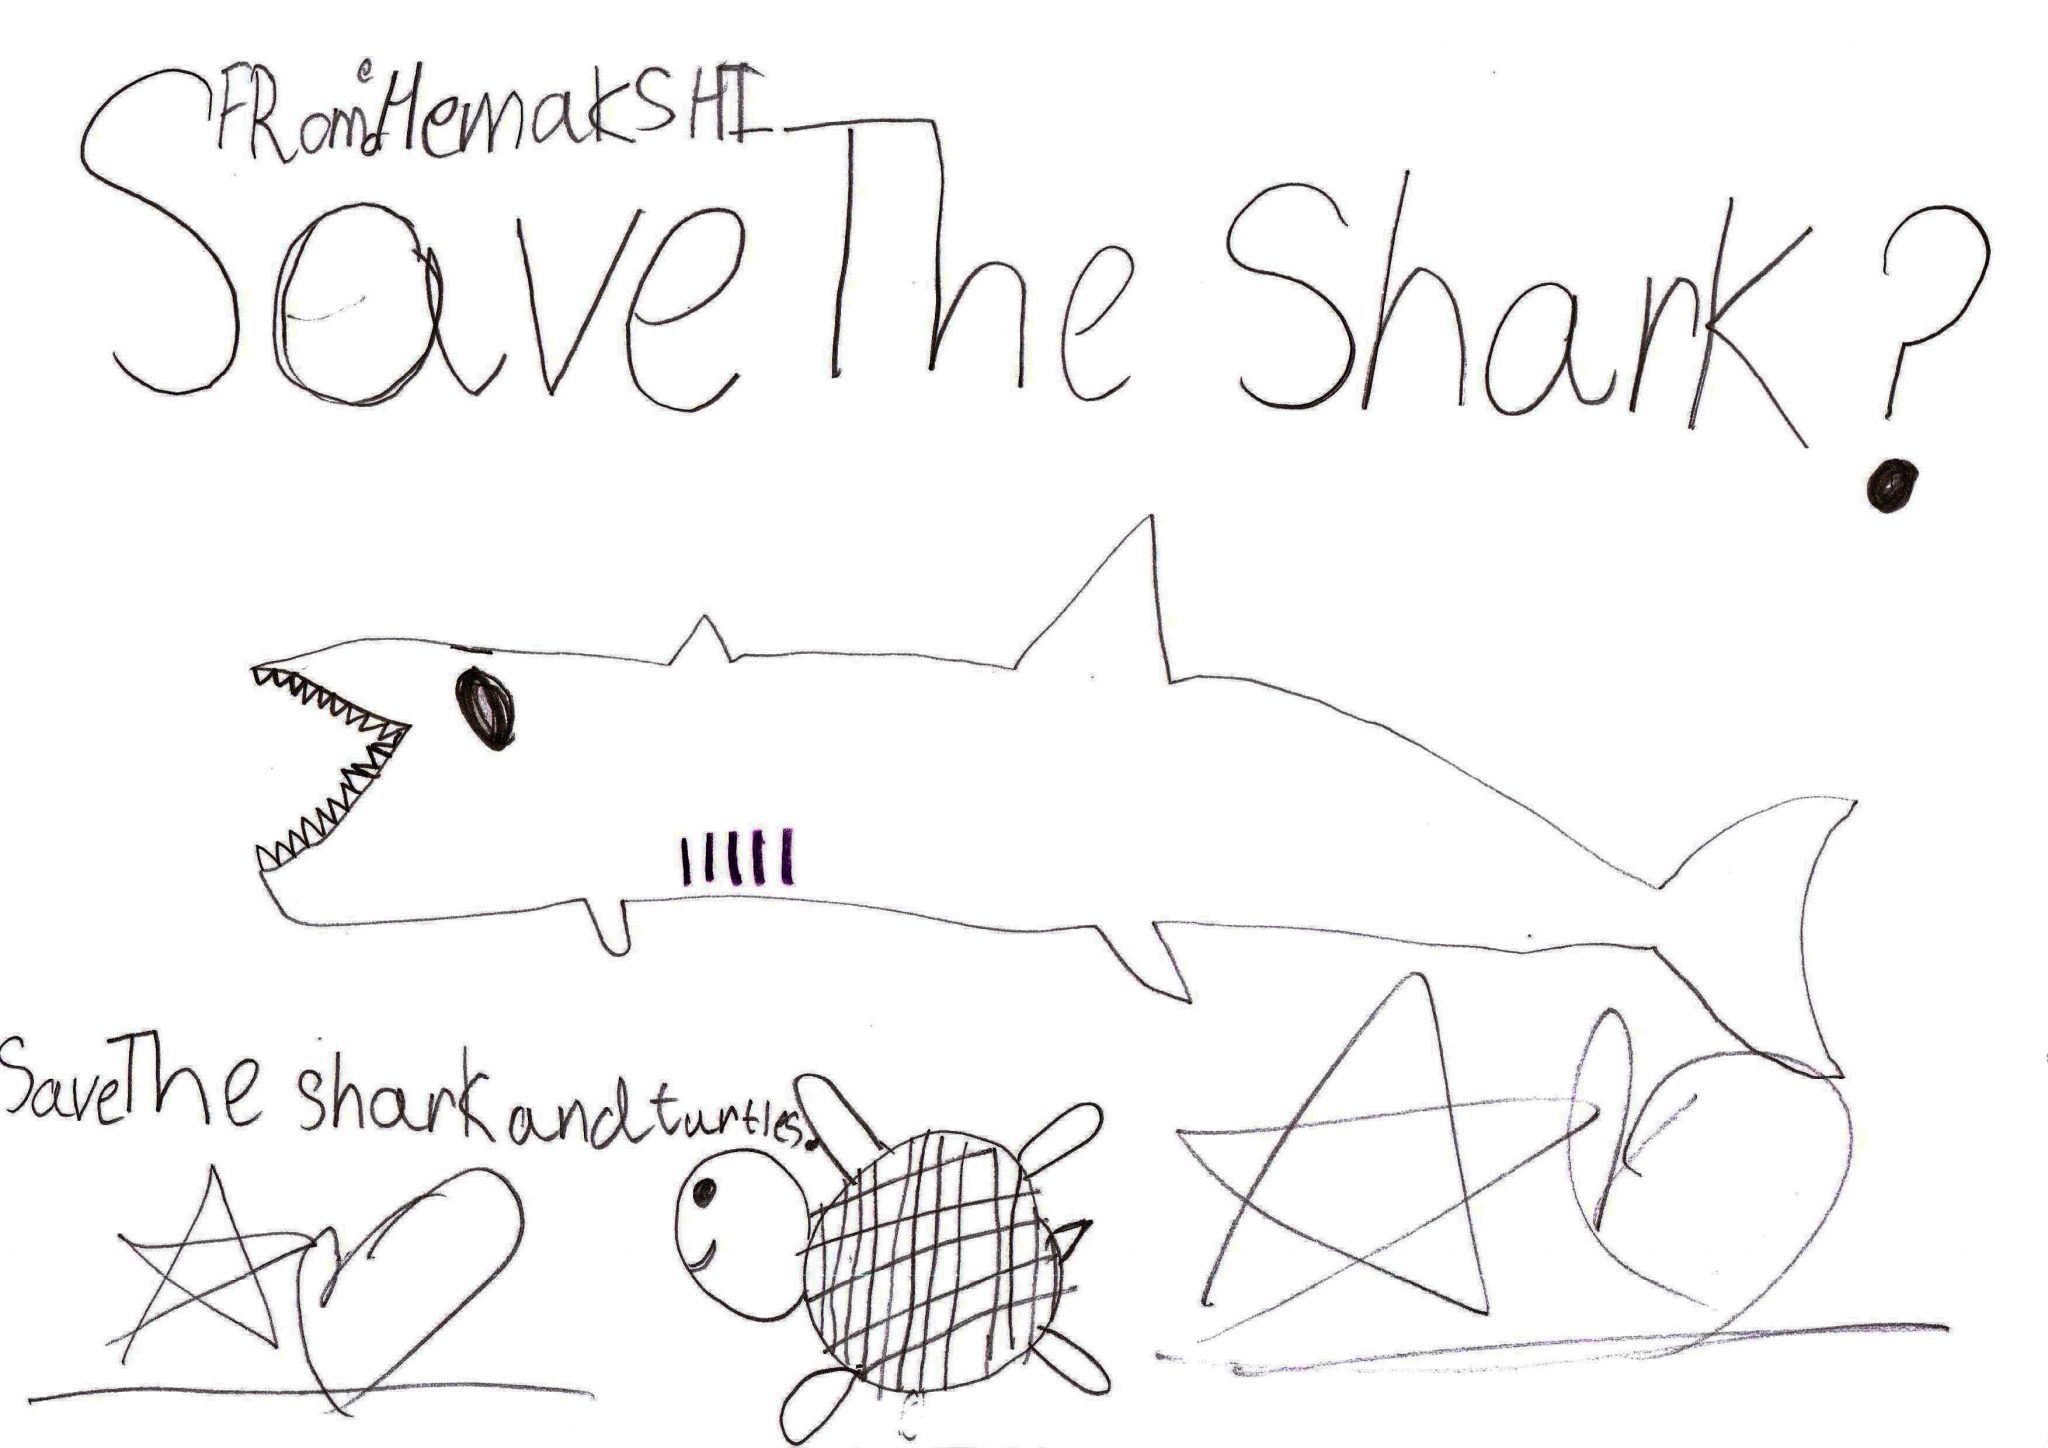 FRom HemakSHI
Save The Shark?
Save The shark and turtles.